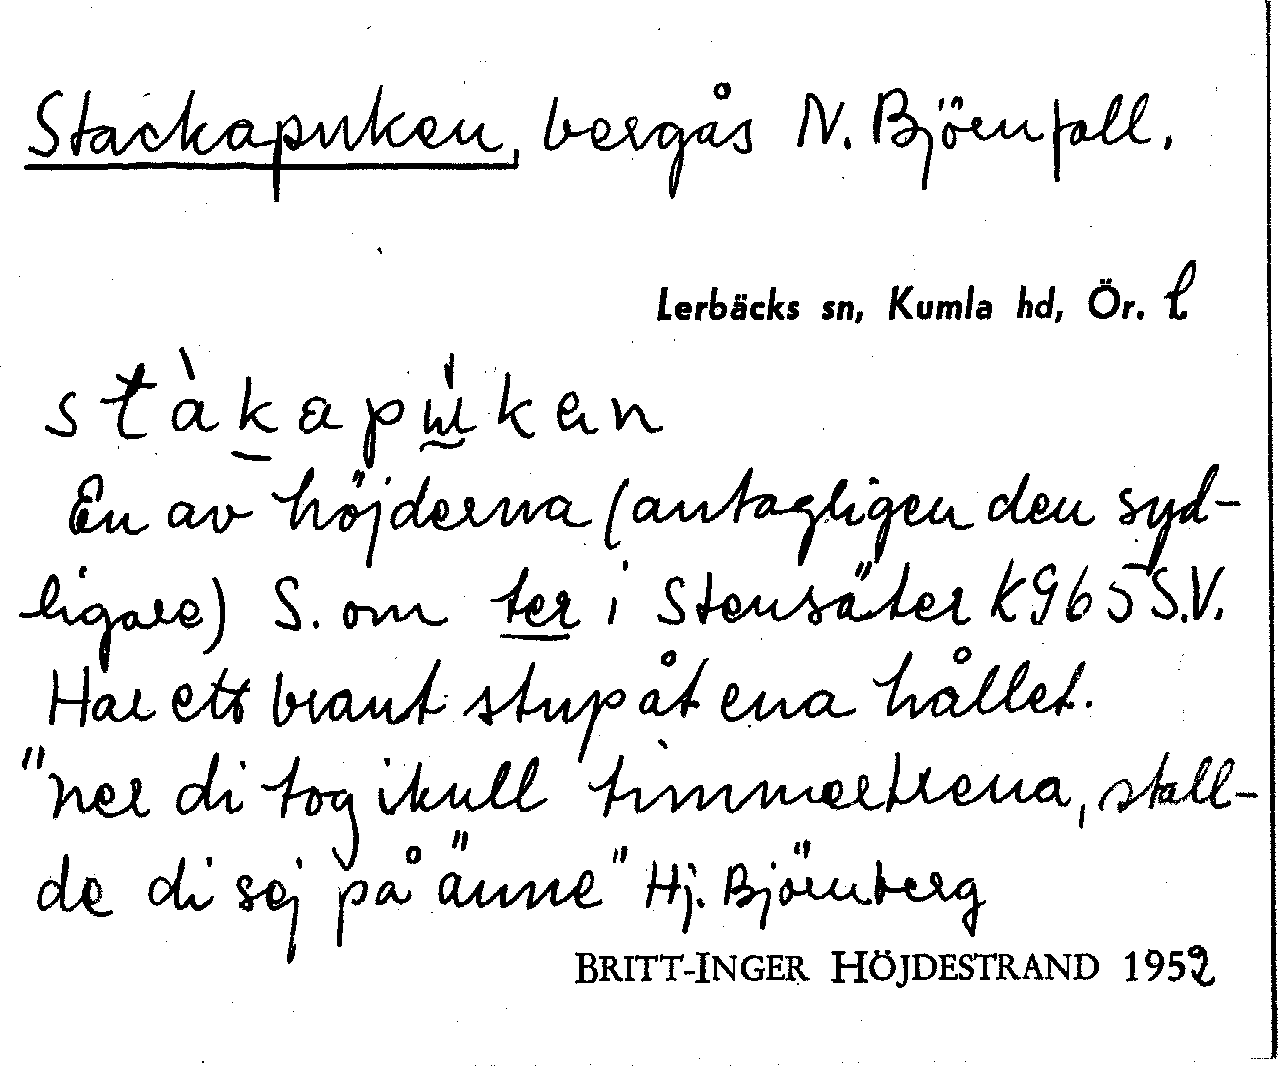 Stackapuken, bergås N. Björnfall.
Lerbäcks sn, Kumla hd, Ör. l
stàkapúkan
En av höjderna (antagligen den syd-
ligare) S. om ter i Stensäter K965 S.V.
Har ett brant stup åt ena hållet.
"ner di tog ikull timmertrena, ställ-
de di sej på änne" Hj. Björnberg
BRITT-INGER HÖJDESTRAND 1952